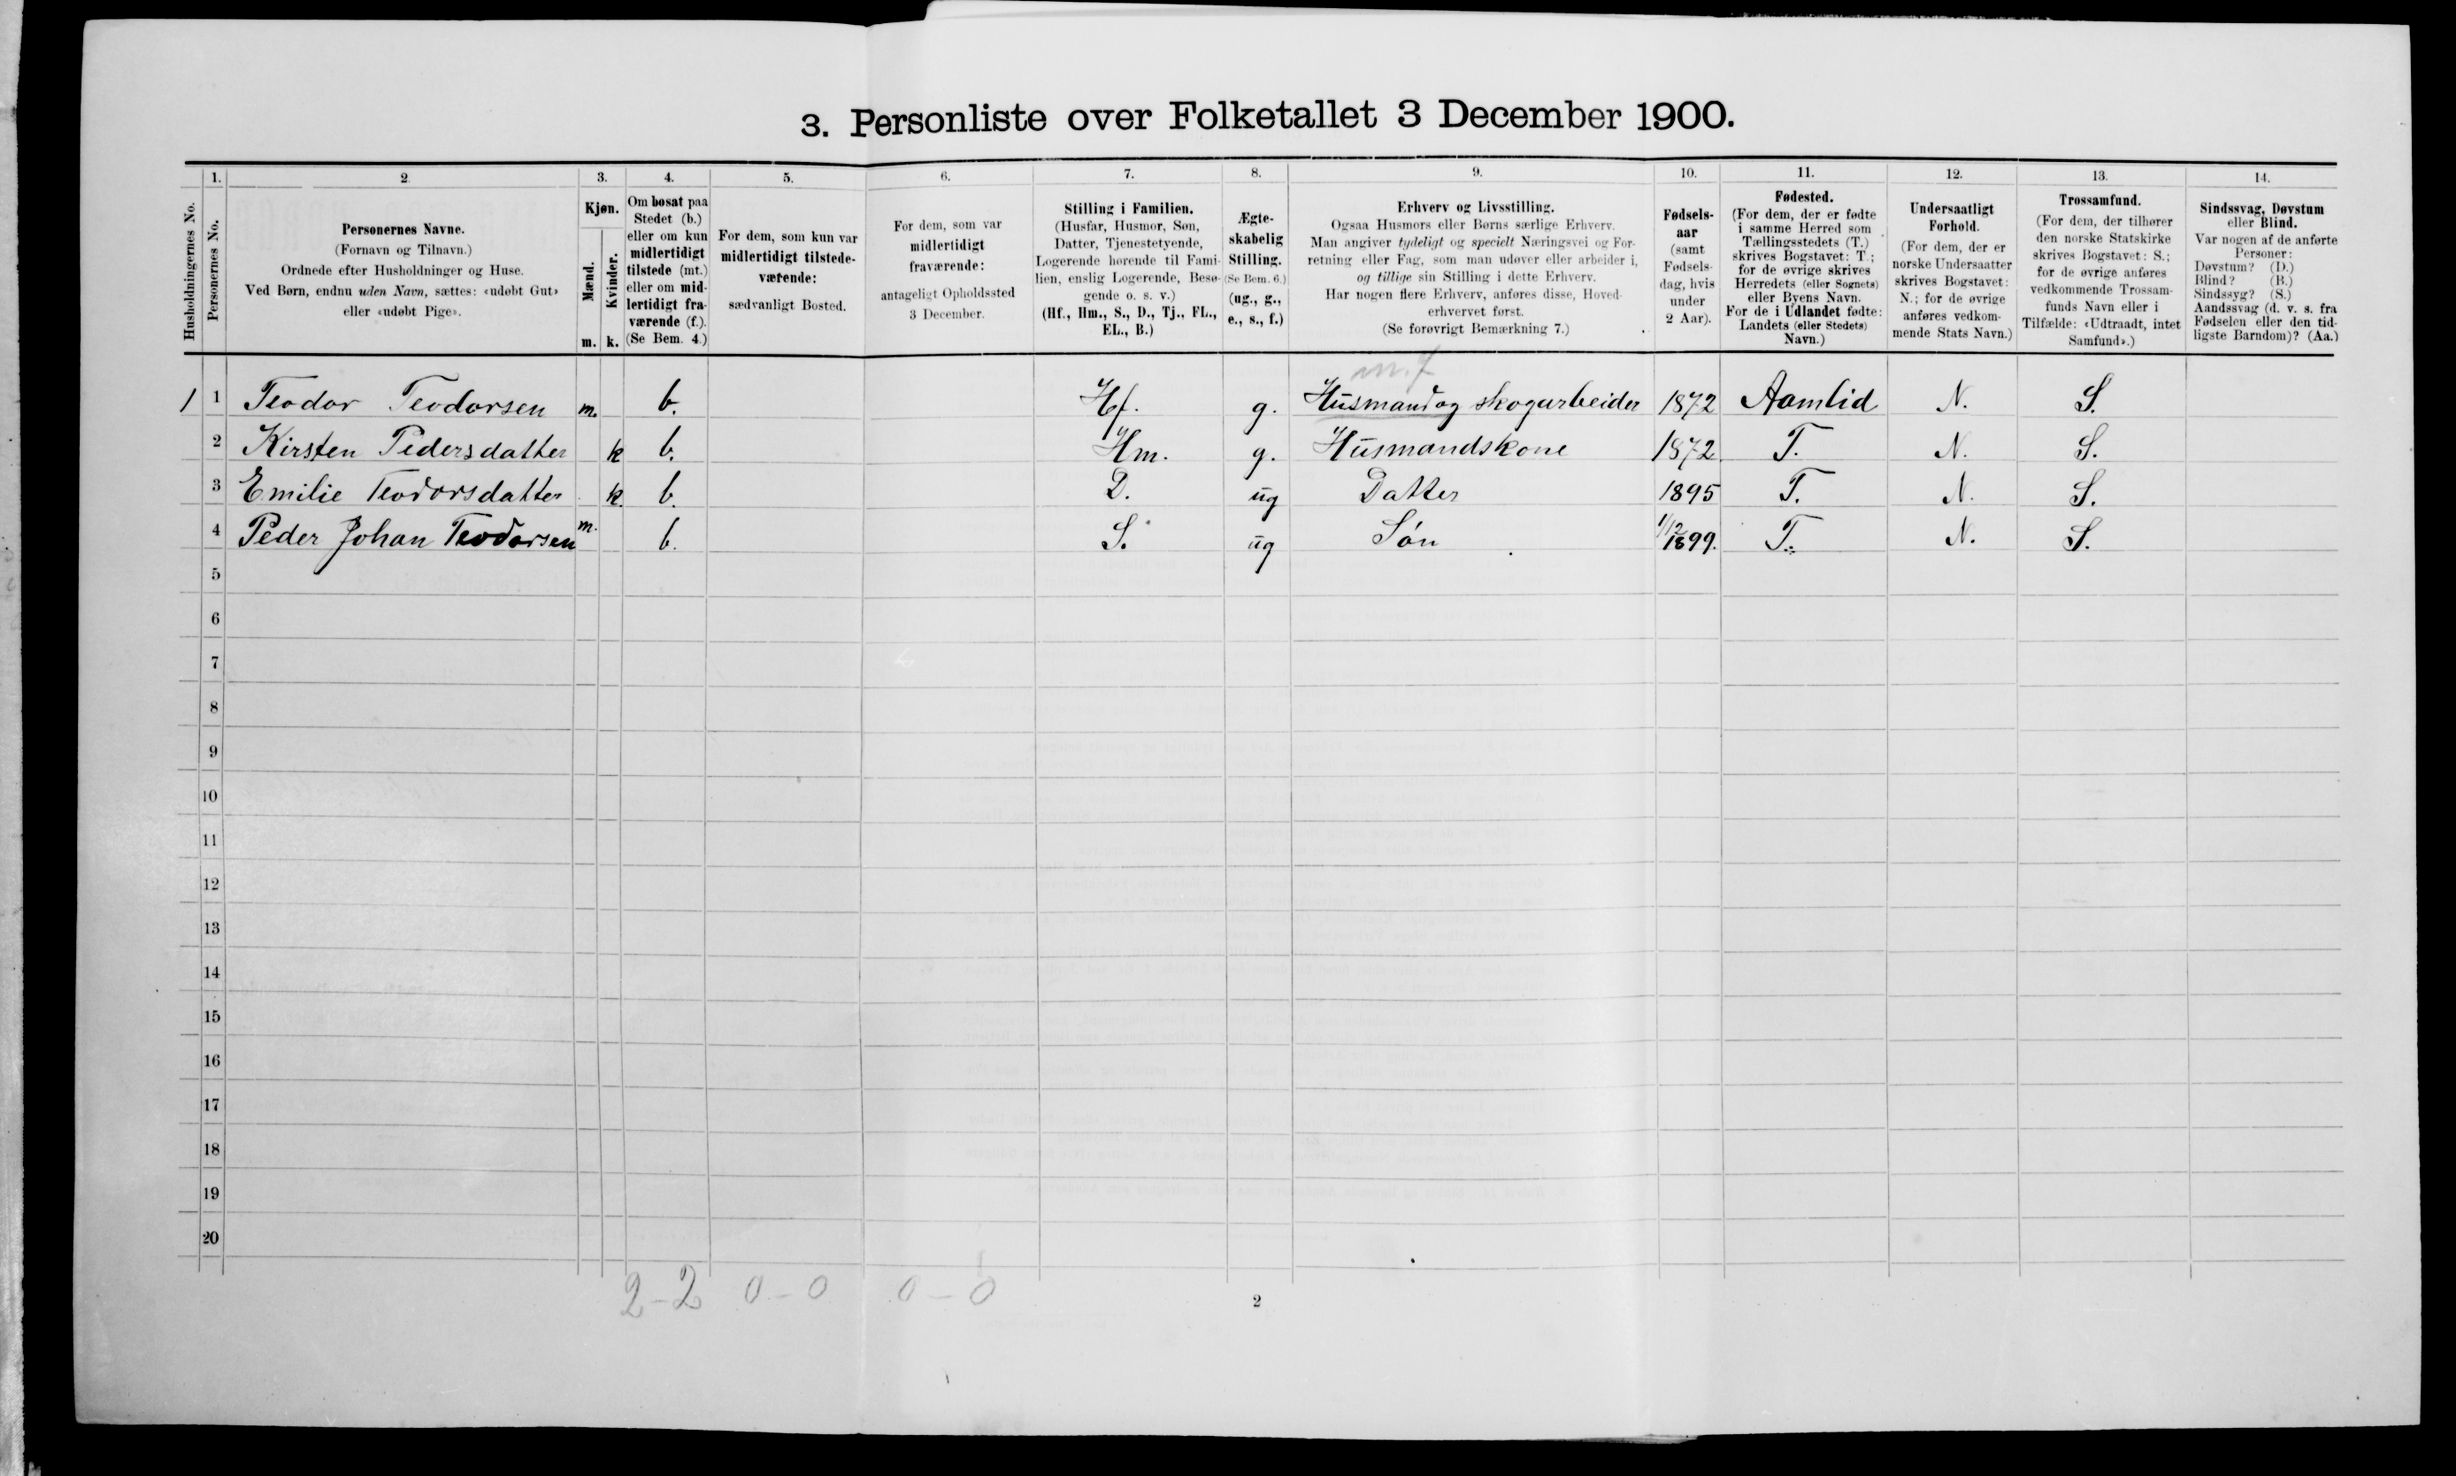 3. Personliste over Folketallet 3 December 1900.
Husholdningernes No.
1.
Personernes No.
2
Personernes Navne.
(Fornavn og Tilnavn.)
Ordnede efter Husholdninger og Huse.
Ved Børn, endnu uden Navn, sættes: «udøbt Gut»
eller «udøbt Pige».
3.
Kjøn.
Mænd.
Kvinder.
m. k.
4.
Om bosat paa
Stedet (b.)
eller om kun
midlertidigt
tilstede (mt.)
eller om mid-
lertidigt fra-
værende (f.).
(Se Bem. 4.)
5.
For dem, som kun var
midlertidigt tilstede-
værende:
sædvanligt Bosted.
6.
For dem, som var
midlertidigt
fraværende:
antageligt Opholdssted
3 December.
7.
Stilling i Familien.
(Husfar, Husmor, Søn,
Datter, Tjenestetyende,
Logerende hørende til Fami-
lien, enslig Logerende, Besø-
gende o. s. v.)
(Hf., Hm., S., D., Tj., FL.,
EL., B.)
8.
Ægte-
skabelig
Stilling.
(Se Bem. 6.)
(ug., g.,
e., s., f.)
9.
Erhverv og Livsstilling.
Ogsaa Husmors eller Børns særlige Erhverv.
Man angiver tydeligt og specielt Næringsvei og For-
retning eller Fag, som man udøver eller arbeider i,
og tillige sin Stilling i dette Erhverv.
Har nogen flere Erhverv, anføres disse, Hoved-
erhvervet først.
(Se forøvrigt Bemærkning 7.)
10.
Fødsels-
aar
(samt
Fødsels-
dag, hvis
under
2 Aar).
11.
Fødested.
(For dem, der er fødte
i samme Herred som
Tællingsstedets (T.)
skrives Bogstavet: T.;
for de øvrige skrives
Herredets (eller Sognets)
eller Byens Navn.
For de i Udlandet fødte:
Landets (eller Stedets)
Navn.)
12.
Undersaatligt
Forhold.
(For dem, der er
norske Undersaatter
skrives Bogstavet:
N.; for de øvrige
anføres vedkom-
mende Stats Navn.)
13.
Trossamfund.
(For dem, der tilhører
den norske Statskirke
skrives Bogstavet: S.;
for de øvrige anføres
vedkommende Trossam-
funds Navn eller i
Tilfælde: «Udtraadt, intet
Samfund».)
14.
Sindssvag, Døvstum
eller Blind.
Var nogen af de anførte
Personer:
Døvstum? (D.)
Blind? (B.)
Sindssyg? (S.)
Aandssvag (d. v. s. fra
Fødselen eller den tid-
ligste Barndom)? (Aa.)
1 1 Teodor Teodorsen m. b. Hf. g. Husmand og skogarbeider 1872 Aamlid N. S.
2 Kirsten Pedersdatter k b. Hm. g. Husmandskone 1872 T. N. S.
3 Emilie Teodorsdatter k b. D. ug Datter 1895 T. N. S.
4 Peder Johan Teodorsen m. b. S. ug Søn 1/12 1899. T. N. S.
5
6
7
8
9
10
11
12
13
14
15
16
17
18
19
20
2-2 0-0 0-0
2